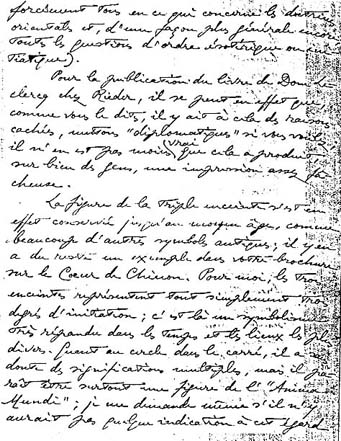 forcément tous en ce qui concerne les doctrines
orientales et, d'une façon plus générale encore
toutes les questions d'ordre ésotérique ou
tiatique).
Pour la publication du livre de Dom Le
clercq chez Rieder, il se peut en effet que,
comme vous le dites, il y ait à cela des raisons
cachées, mettons "diplomatiques" si vous voulez
il n'en est pas moins vrai que cela a produit
sur bien des gens, une impression assez fâ
cheuse.
La figure de la triple enceinte s'est en
effet conservée jusqu'au moyen âge, comme
beaucoup d'autres symboles antiques; il y en
a du reste un exemple dans votre brochure
sur le Coeur de Chinon. Pour moi, les trois
enceintes représentent tout simplement trois
degrés d'initiation; c'est là un symbolisme
très répandu dans les temps et les lieux les plus
divers. Quant au cercle dans le carré, il a sans
doute des significations multiples, mais il pa
raît être surtout une figure de l'"Anima
Mundi"; je me demande même s'il n'y
aurait pas quelque indication à cet égard